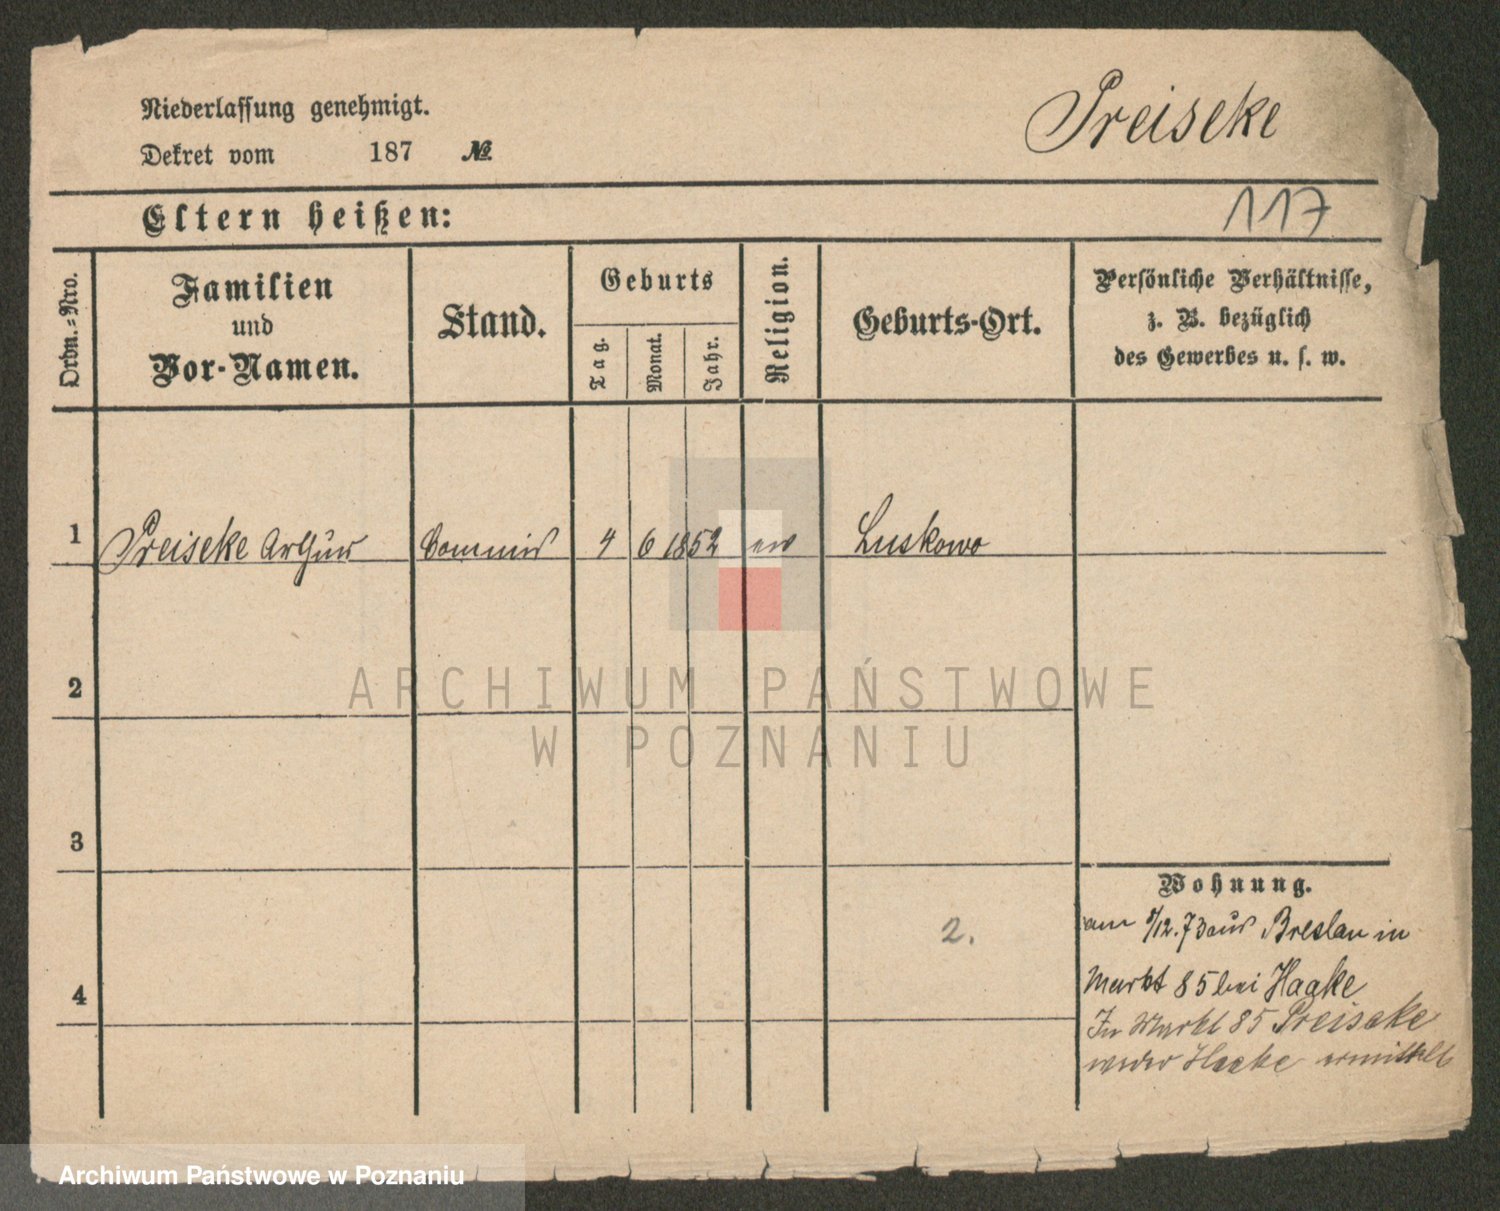 Preiseke
Niederlassung genehmigt.
Dekret vom 187 №
117
Eltern heißen:
Ordn.=Nro.
Familien
und
Vor-Namen.
Stand.
Geburts
Tag.
Monat.
Jahr.
Religion.
Geburts-Ort.
Persönliche Verhältnisse,
z. B. bezüglich
des Gewerbes u. s. w.
1 Preiseke Arthur Commis 4 6 1852 ev Luskowo
2
3
4
2.
Wohnung.
am /12.73 aus Breslau in
Markt 85 bei Haake
In Markt 85 Preiseke
weder Haake ermittelt
ARCHIWUM PAŃSTWOWE
W POZNANIU
Archiwum Państwowe w Poznaniu